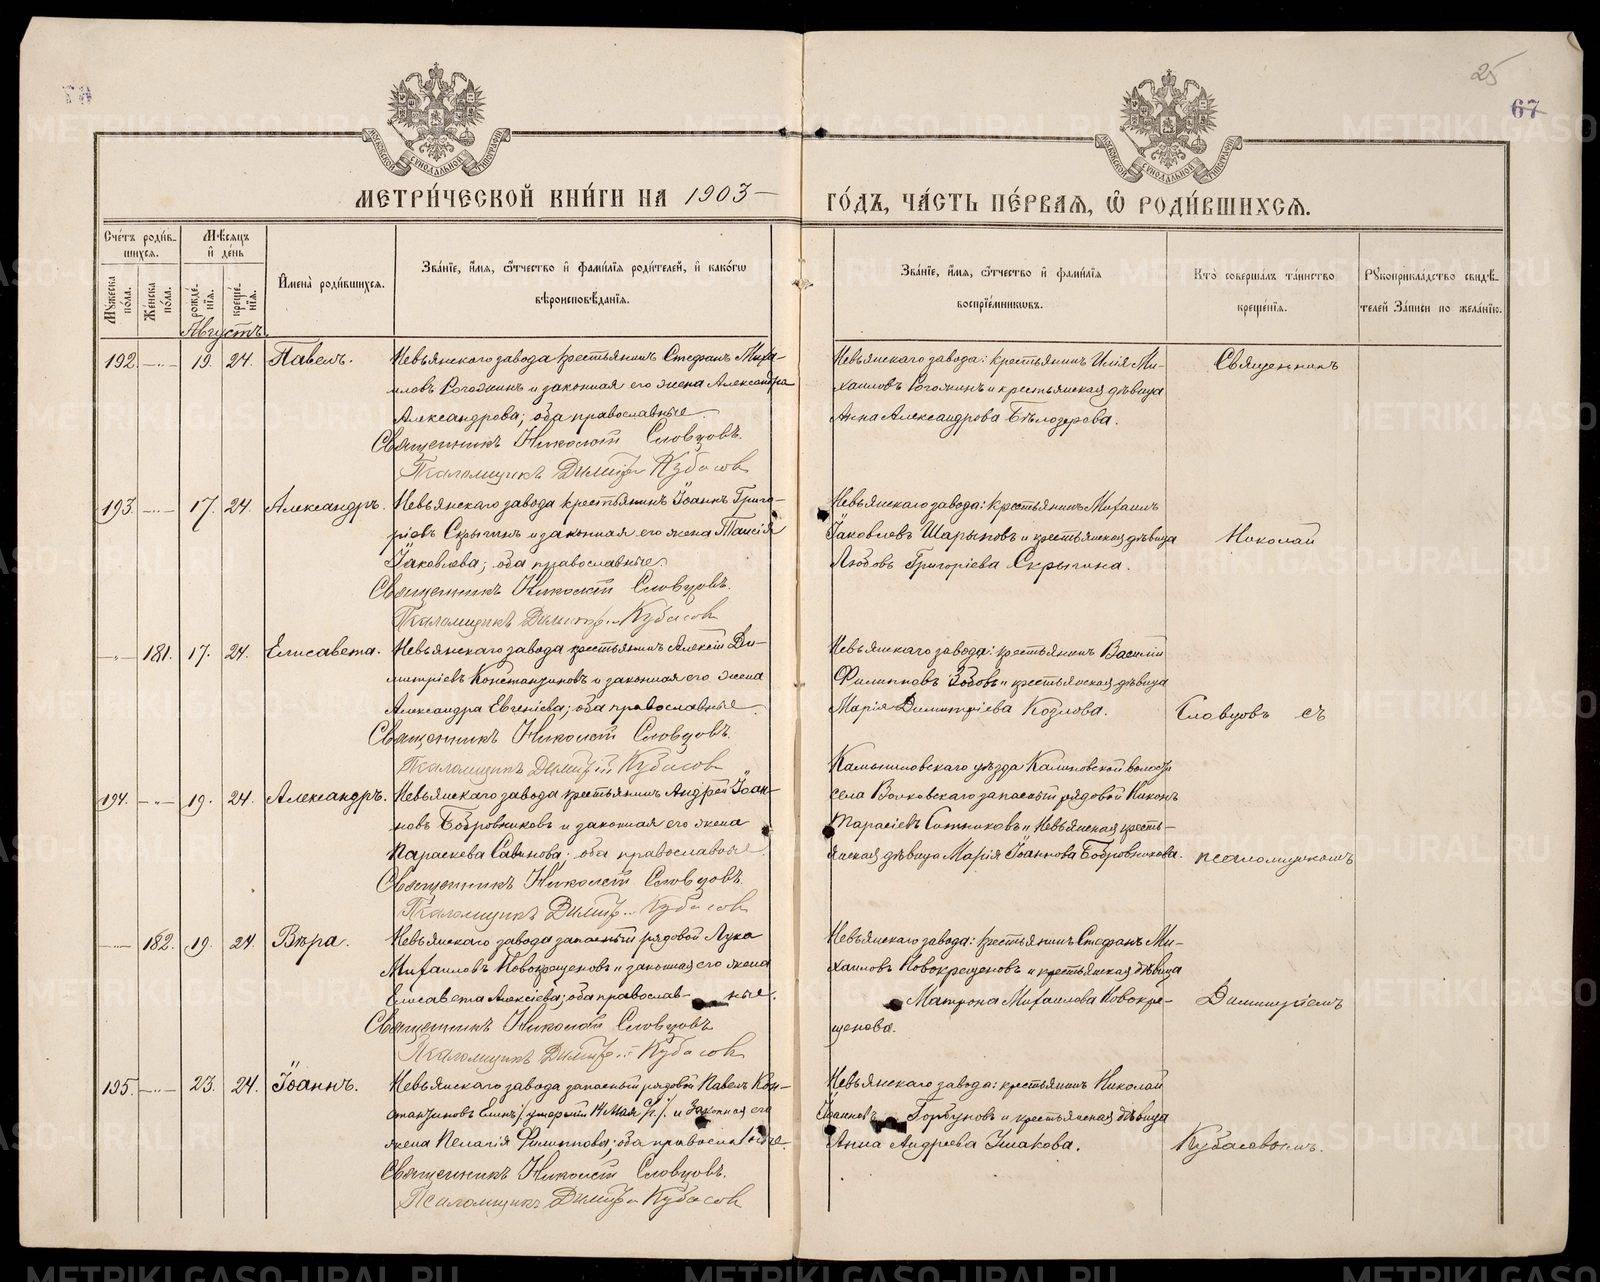 25
67
МЕТРИ́ЧЕСКОЙ КНИ́ГИ НА 1903
ГО́ДЪ, ЧА́СТЬ ПЕ́РВАѦ, Ѽ РОДИ́ВШИХСѦ.
Сче́тъ роди́в-
шихсѧ.
Мѣ́сѧцъ
и҆ де́нь
Мꙋ́жеска
по́ла.
Же́нска
по́ла.
рожде́-
нїѧ.
креще́-
нїѧ.
И҆мена̀ роди́вшихсѧ.
Зва́нїе, и҆́мѧ, ѻ҆́тчество и҆ фами́лїѧ роди́телей, и҆ како́гѡ
вѣроисповѣ́данїѧ.
Зва́нїе, и҆́мѧ, ѻ҆́тчество и҆ фами́лїѧ
воспрїе́мникѡвъ.
Кто̀ соверша́лъ та́инство
креще́нїѧ.
Рꙋкоприкла́дство свидѣ́-
телей за́писи по жела́нїю.
Августъ.
192. 19. 24. Павелъ.
Невьянскаго завода крестьянинъ Стефанъ Миха-
иловъ Рогожинъ и законная его жена Александра
Александрова; оба православные.
Священникъ Николай Словцовъ.
Псаломщикъ Димитрій Кубасов
Невьянскаго завода: крестьянинъ Илія Ми-
хаиловъ Рогожинъ и крестьянская дѣвица
Анна Александрова Бѣлозерова.
Священникъ
193. 17. 24. Александръ.
Невьянскаго завода крестьянинъ Іоаннъ Григо-
ріевъ Скрыгинъ и законная его жена Таисія
Іаковлева; оба православные.
Священникъ Николай Словцовъ.
Псаломщикъ Димитрій Кубасов
Невьянскаго завода: крестьянинъ Михаилъ
Іаковлевъ Шарыповъ и крестьянская дѣвица
Любовь Григоріева Скрыгина.
Николай
181. 17. 24. Елисавета.
Невьянскаго завода крестьянинъ Алексій Ди-
митріевъ Константиновъ и законная его жена
Александра Евгеніева; оба православные.
Священникъ Николай Словцовъ.
Псаломщикъ Димитрій Кубасов
Невьянскаго завода: крестьянинъ Василій
Филипповъ и крестьянская дѣвица
Марія Димитріева Козлова.
Словцовъ съ
194. 19. 24. Александръ.
Невьянскаго завода крестьянинъ Андрей Іоан-
новъ Бобровниковъ и законная его жена
Параскева Савинова; оба православные.
Священникъ Николай Словцовъ.
Псаломщикъ Димитрій Кубасов
Камышловскаго уѣзда Калиновской волости
села запасный рядовой Никонъ
Тарасіевъ Сотниковъ и Невьянская кресть-
янская дѣвица Марія Іоаннова Бобровникова.
псаломщикомъ
182. 19. 24. Вѣра.
Невьянскаго завода запасный рядовой Лука
Михаиловъ Новокрещеновъ и законная его жена
Елисавета Алексіева; оба православ- ные.
Священникъ Николай Словцовъ
Псаломщикъ Димитрій Кубасов
Невьянскаго завода: крестьянинъ Стефанъ Ми-
хаиловъ Новокрещеновъ и крестьянская дѣвица
Матрона Михаилова Новокре-
щенова.
Димитріемъ
195. 23. 24. Іоаннъ.
Невьянскаго завода запасный рядовой Павелъ Кон-
стантиновъ умершій 14 мая и законная его
жена Пелагія Филиппова; оба православные.
Священникъ Николай Словцовъ.
Псаломщикъ Димитрій Кубасов
Невьянскаго завода: крестьянинъ Николай
Іоанновъ Горбуновъ и крестьянская дѣвица
Анна Андреева Ушакова.
Кубасовымъ.
METRIKI.GASO-URAL.RU